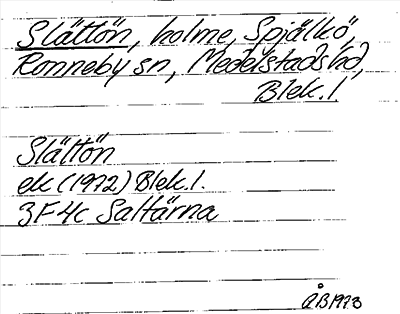 Slättön, holme, Spjälkö,
Ronneby sn, Medelstads hd,
Blek. l
Slättön
ek (1972) Blek. l.
3F 4c Saltärna
ÅB 1973